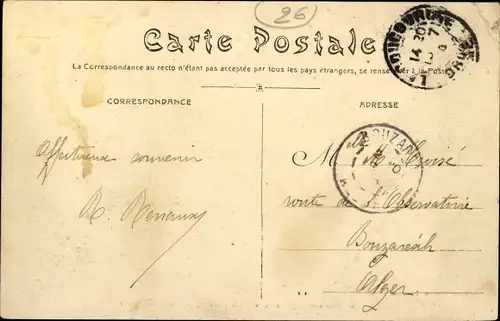 26
Carte Postale
La Correspondance au recto n'étant pas acceptée par tous les pays étrangers, se renseigner à la Poste
CORRESPONDANCE
ADRESSE
Affectueux souvenir
Mlle M.
route de l'Observatoire
Bouzaréah
Alger